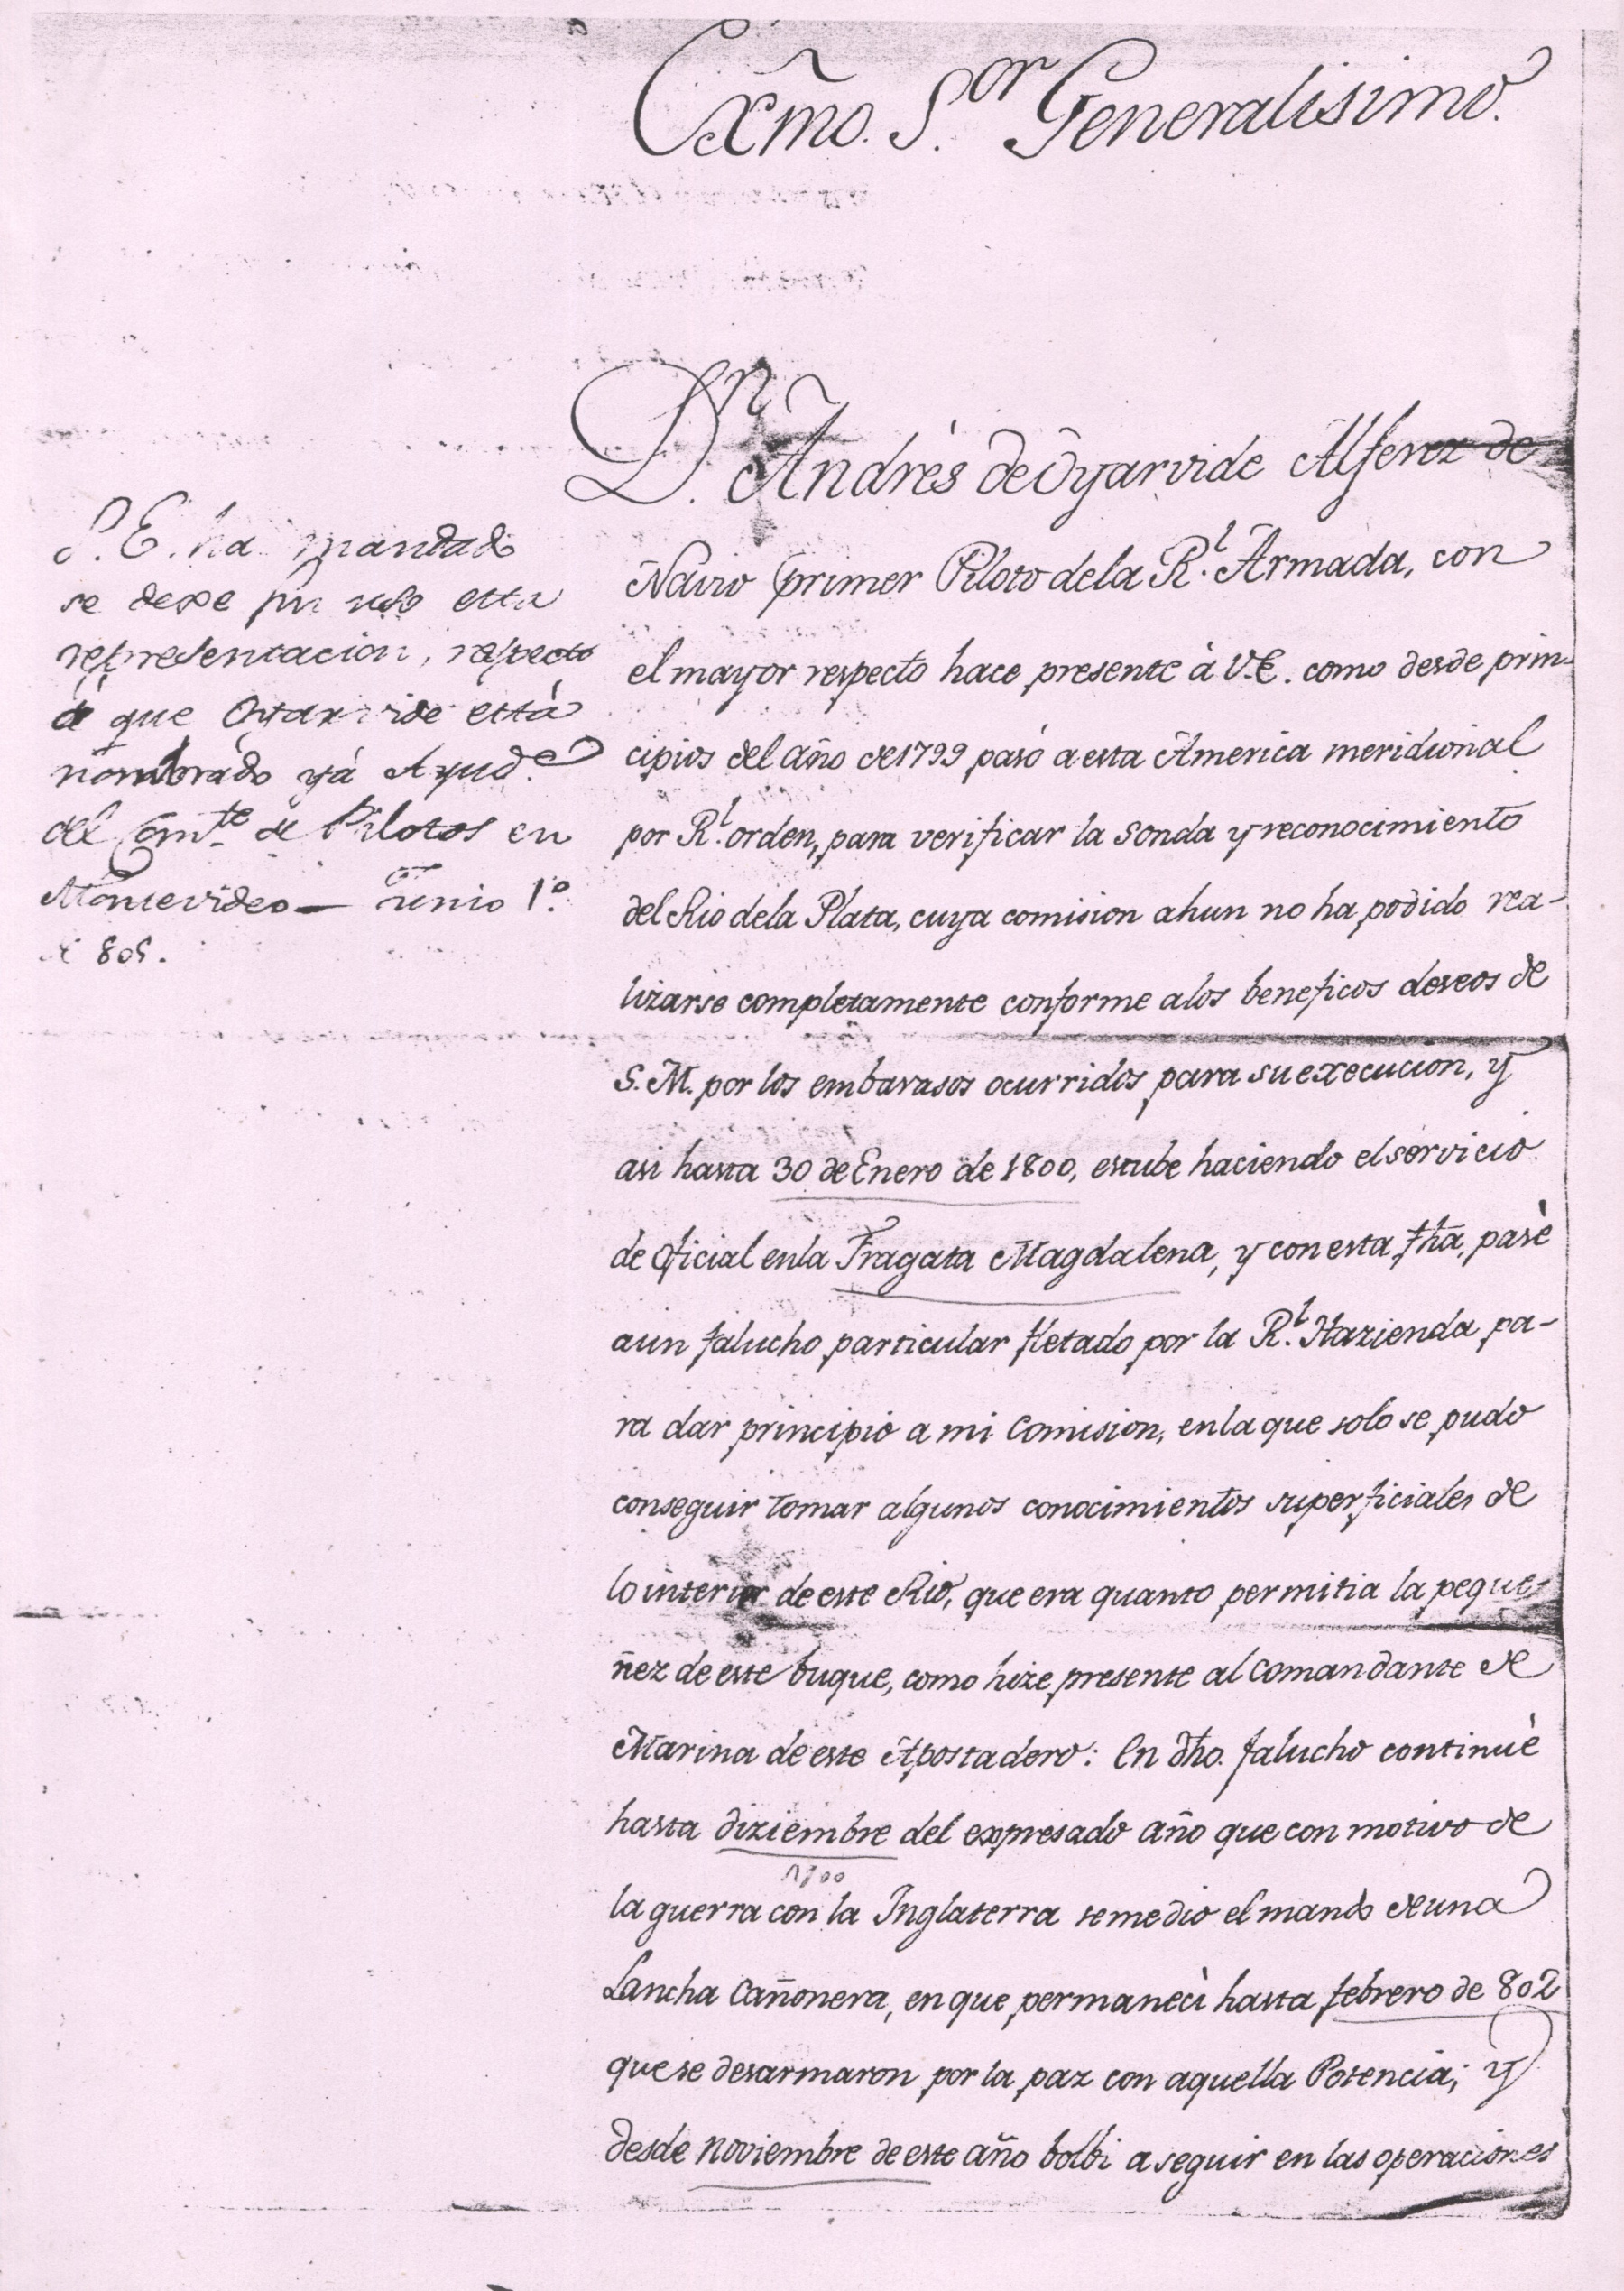 Exmo. S.or Generalisimo.
D.n Andrès de Oyarvide Alferez de
Navio y primer Piloto dela R.l Armada, con
el mayor respecto hace presente à V.E. como desde prin-
cipios del año de 1799 pasó a esta America meridional
por R.l orden, para verificar la sonda y reconocimiento
del Rio dela Plata, cuya comision ahun no ha podido rea-
lizarse completamente conforme alos beneficos deseos de
S.M. por los embarasos ocurridos para su execucion, y
asi hasta 30 de Enero de 1800, estube haciendo el servicio
de oficial enla Fragata Magdalena, y con esta fha, pasè
aun falucho particular fletado por la R.l Hazienda pa-
ra dar principio a mi Comision, enla que solo se pudo
conseguir tomar algunos conocimientos superficiales de
lo interior de este Rio, que era quanto permitia la peque-
ñez de este buque, como hize presente al Comandante de
Marina de este Apostadero: En dho. falucho continuè
hasta diziembre del expresado año que con motivo de
1800
la guerra con la Inglaterra se me dio el mando de una
Lancha Cañonera, en que permanecì hasta febrero de 802
que se desarmaron por la paz con aquella Potencia; y
desde noviembre de este año bolbi a seguir en las operaciones
S.E. ha mandado
se dexe sin uso esta
representacion, respecto
á que Oyarvide està
nombrado yà Ayud.e
del Com.te de Pilotos en
Montevideo — Junio 1.o
de 805.